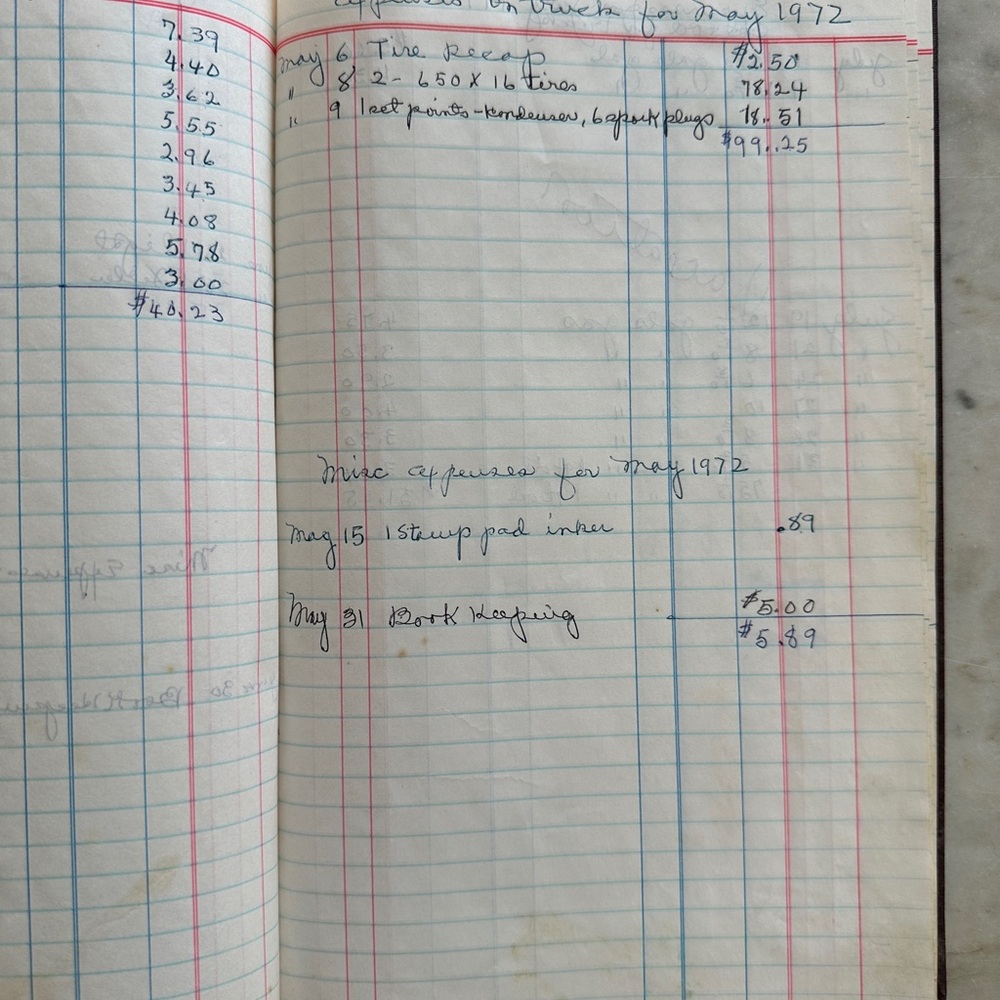 7.39
4.40
3.62
5.55
2.96
3.45
4.08
5.78
3.00
$40.23
expenses on truck for May 1972
May 6 Tire Recap $2.50
" 8 2- 650 X 16 tires 78.24
" 9 1 set points - Kondenser, 6 spark plugs 18.51
$99.25
Misc expenses for May 1972
May 15 1 Stamp pad inker .89
May 31 Book Keeping $5.00
$5.89